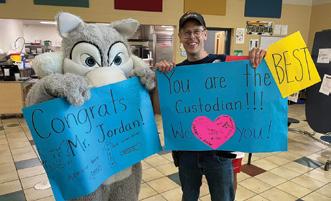 Congrats
Mr. Jordan!
You are the BEST
Custodian!!!
We you!